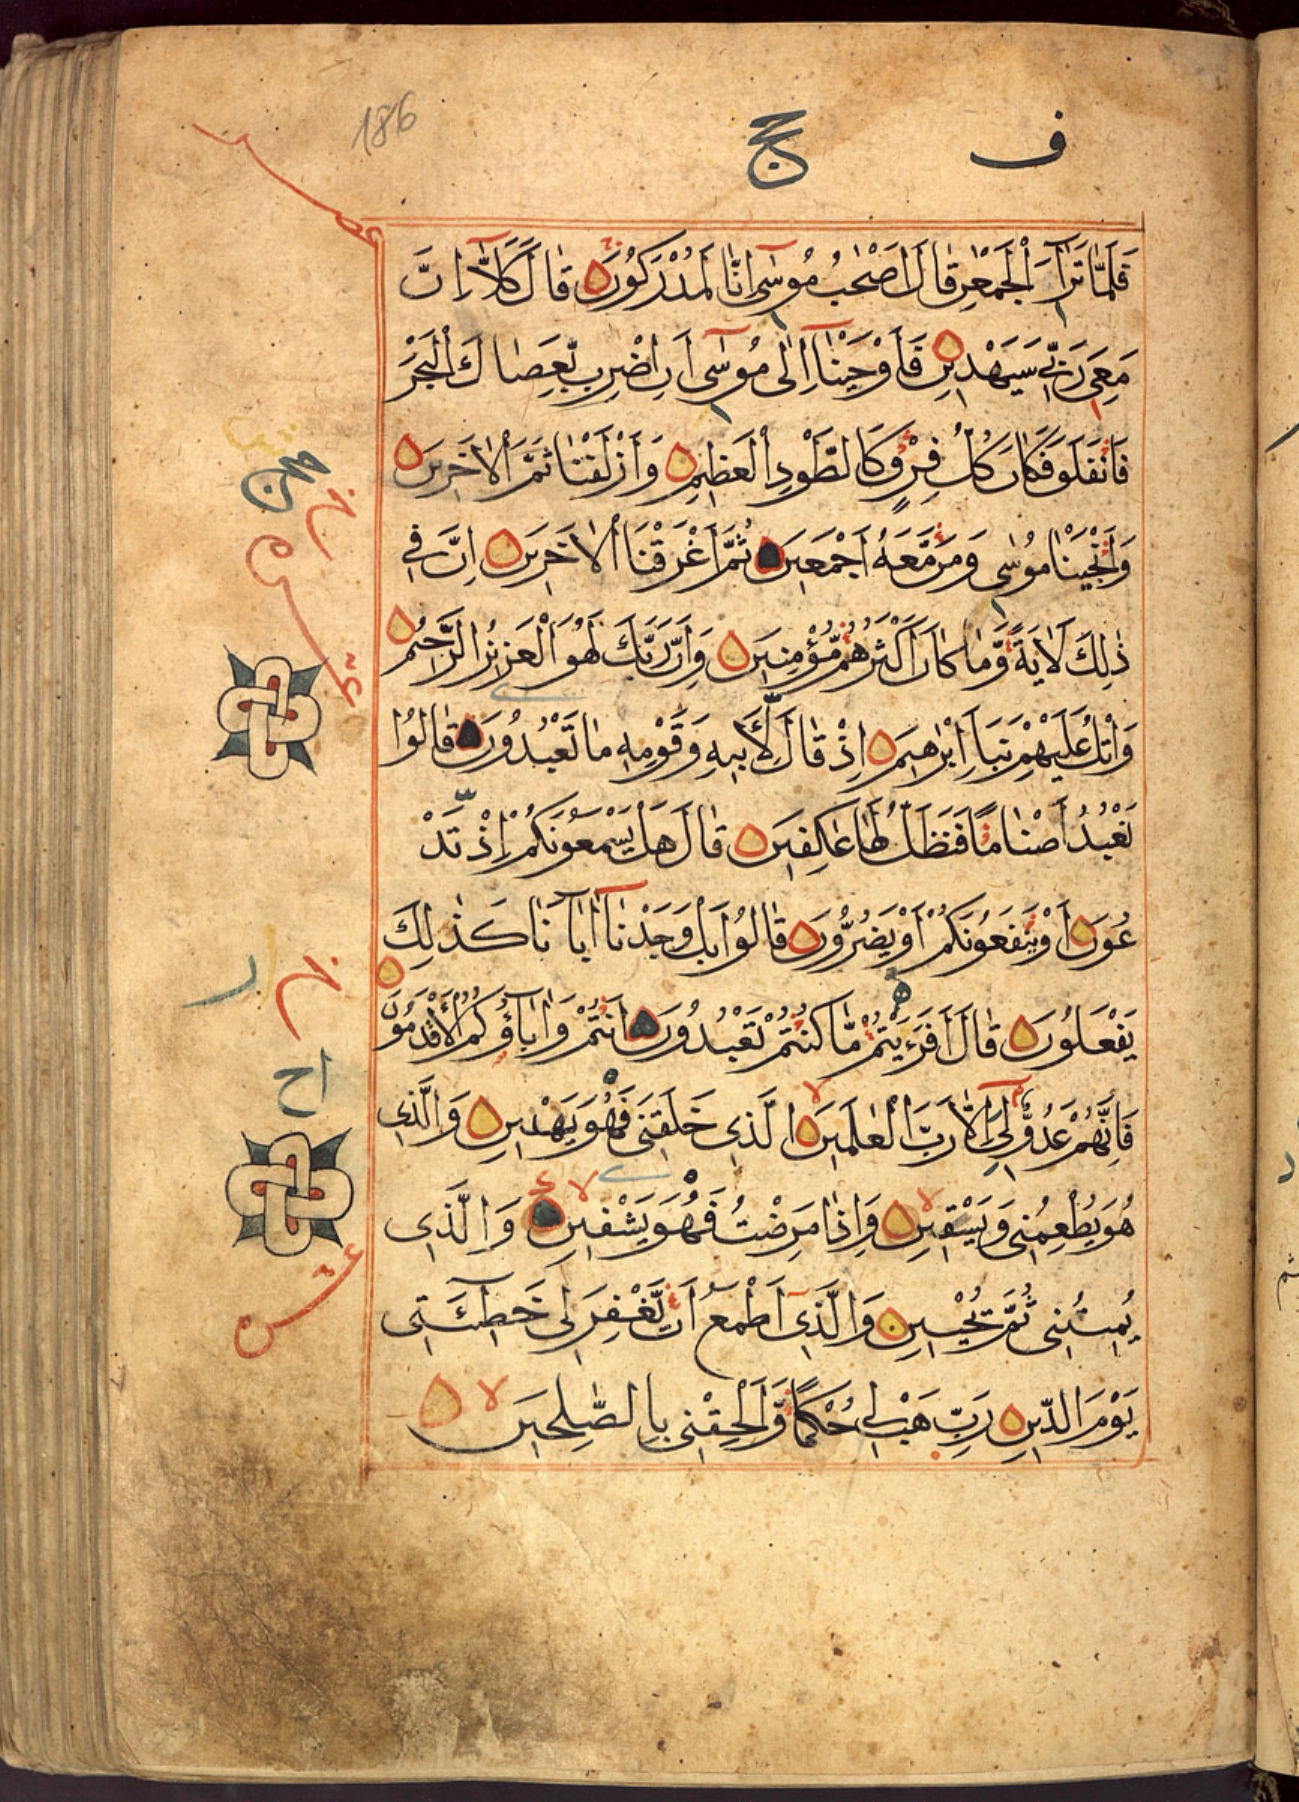 186
ف
حج
فَلَمَّا تَرَآءَ الْجَمْعٰنِ قَالَ اَصْحٰبُ مُوسٰٓى اِنَّا لَمُدْرَكُونَ قَالَ كَلَّآ اِنَّ
مَعِىَ رَبِّى سَيَهْدِينِ فَاَوْحَيْنَآ اِلٰى مُوسٰٓى اَنِ اضْرِب بِّعَصَاكَ الْبَحْرَ
فَانْفَلَقَ فَكَانَ كُلُّ فِرْقٍ كَالطَّوْدِ الْعَظِيمِ وَاَزْلَفْنَا ثَمَّ الْاٰخَرِينَ
وَاَنْجَيْنَا مُوسٰى وَمَن مَّعَهُ اَجْمَعِينَ ثُمَّ اَغْرَقْنَا الْاٰخَرِينَ اِنَّ فِى
ذٰلِكَ لَاٰيَةً وَّمَا كَانَ اَكْثَرُهُم مُّؤْمِنِينَ وَاِنَّ رَبَّكَ لَهُوَ الْعَزِيزُ الرَّحِيمُ
وَاتْلُ عَلَيْهِمْ نَبَاَ اِبْرٰهِيمَ اِذْ قَالَ لِاَبِيهِ وَقَوْمِهِ مَا تَعْبُدُونَ قَالُوا
نَعْبُدُ اَصْنَامًا فَنَظَلُّ لَهَا عَاكِفِينَ قَالَ هَلْ يَسْمَعُونَكُمْ اِذْ تَدْ
عُونَ اَوْ يَنْفَعُونَكُمْ اَوْ يَضُرُّونَ قَالُوا بَلْ وَجَدْنَآ اٰبَآءَنَا كَذٰلِكَ
يَفْعَلُونَ قَالَ اَفَرَءَيْتُم مَّا كُنْتُمْ تَعْبُدُونَ اَنْتُمْ وَاٰبَآؤُكُمُ الْاَقْدَمُونَ
فَاِنَّهُمْ عَدُوٌّ لِّى اِلَّا رَبَّ الْعٰلَمِينَ الَّذِى خَلَقَنِى فَهُوَ يَهْدِينِ وَالَّذِى
هُوَ يُطْعِمُنِى وَيَسْقِينِ وَاِذَا مَرِضْتُ فَهُوَ يَشْفِينِ وَالَّذِى
يُمِيتُنِى ثُمَّ يُحْيِينِ وَالَّذِى اَطْمَعُ اَن يَّغْفِرَ لِى خَطِيٓئَتِى
يَوْمَ الدِّينِ رَبِّ هَبْ لِى حُكْمًا وَّاَلْحِقْنِى بِالصّٰلِحِينَ